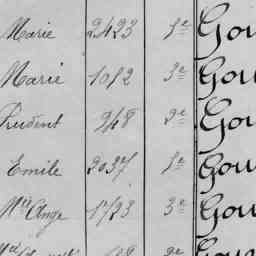 Marie 2423 1e Gou
Marie 1012 3e Gou
Prudent 948 2e Gou
Emile 2037 1e Gou
Me Ange 1723 3e Gou